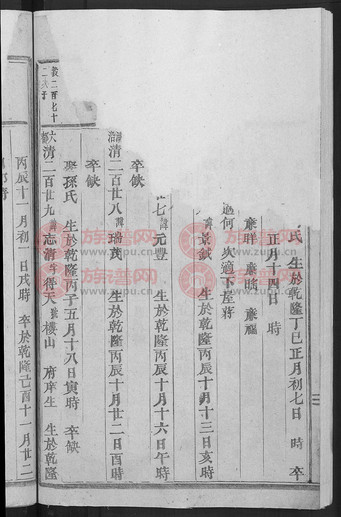 氏 生於乾隆丁巳正月初七日 時 卒
正月十四日 時
康祥 康賜 康福
適何 次適下屋蔣
諱景試 生於乾隆丙辰十月十三日亥時
七 諱元豐 生於乾隆丙辰十月十六日午時
卒缺
清二百廿八諱瑞茂 生於乾隆丙辰十月廿二日酉時
卒缺
娶孫氏 生於乾隆丙子五月十八日寅時 卒缺
清二百廿九諱志清字得天號樓山 府庠生 生於乾隆
丙辰十一月初一日戌時 卒於乾隆己酉十一月廿二
族譜网
zupu.cn